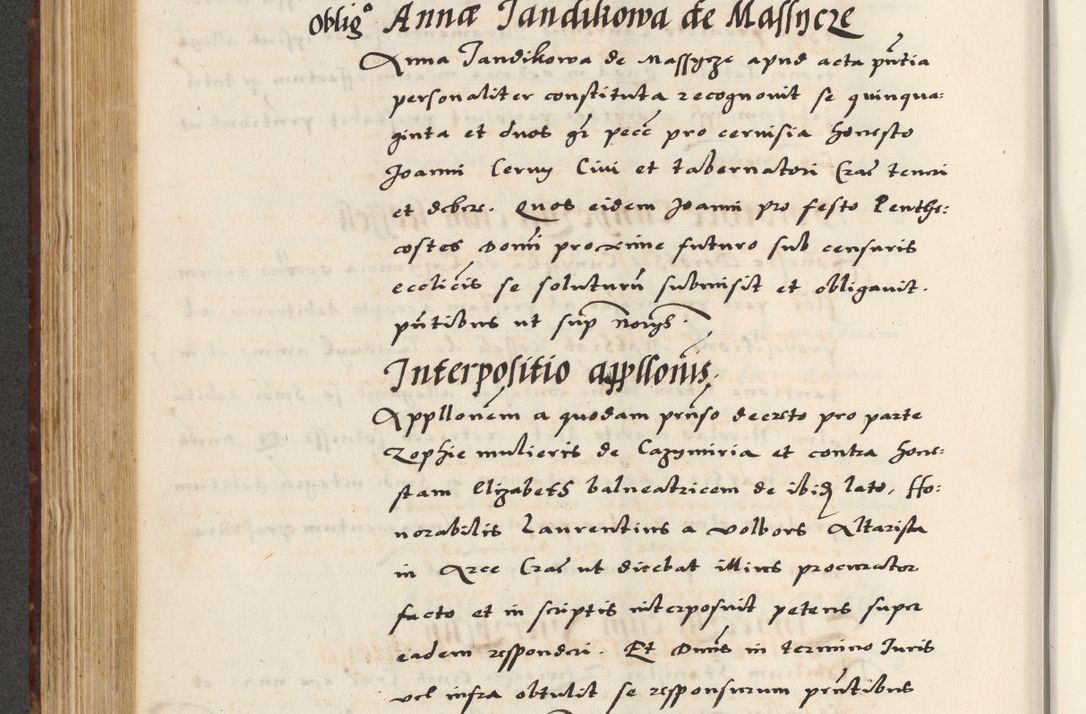 Obligᵒ Annæ Jandikowa de Massycze
Anna Jandikowa de Massycze apud acta pñtia
personaliter constituta recognovit se quinqua:
ginta et duos gř pecč pro cervisia honesto
Joanni Cerny Civi et tabernatori Crač teneri
et debere. Quos eidem Joanni pro festo Penthe:
costes Domĩ proxime futuro sub censuris
eccliẽis se soluturũ submisit et obligavit.
pñtibus ut sup̃ Norijs.
Interpositio appllonĩs.
Appllonem a quodam prñso decreto pro parte
Zophie mulieris de Cazymiria et contra hone:
stam Elizabeth balneatricem de ibid lato, Ho:
norabilis Laurentius a Volbors Altarista
in Arce Crač ut dicebat illius procurator
facto et in scriptis interposuit petens super
eadem responderi. Et Domĩs in termino Juris
vel infra obtulit se responsurum prñtibus